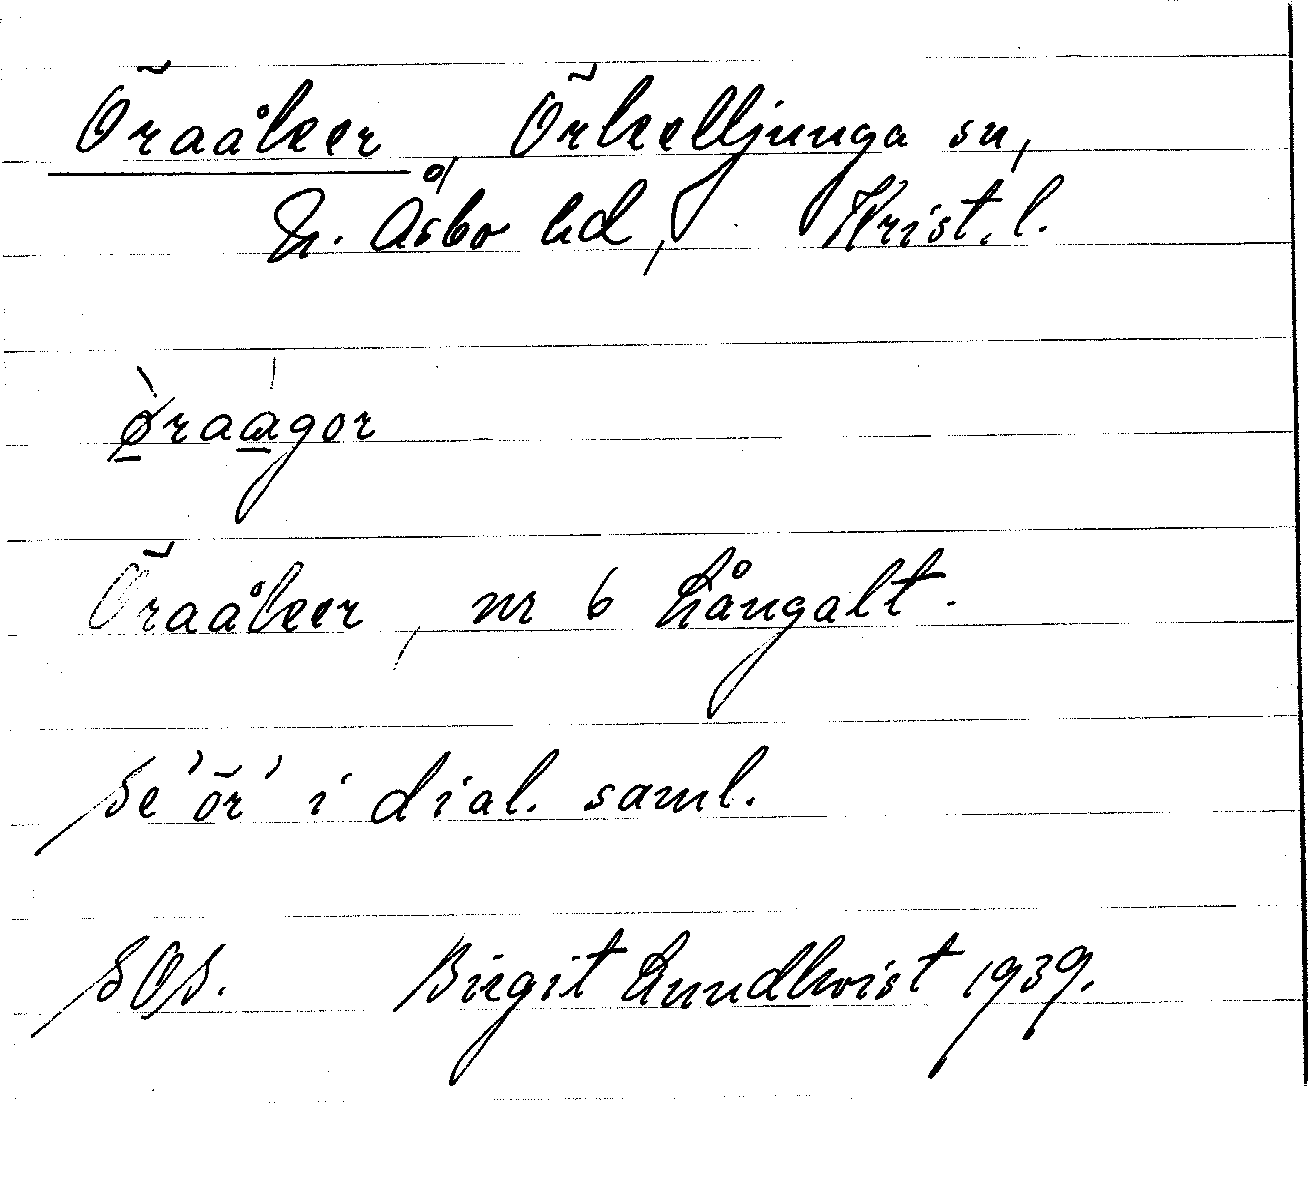 Öraåker, Örkelljunga sn,
N. Åsbo hd, Krist. l.
ø̀raágor
Öraåker, nr 6 Långalt.
Se 'ör' i dial. saml.
SOS. Birgit Lundkvist 1939.